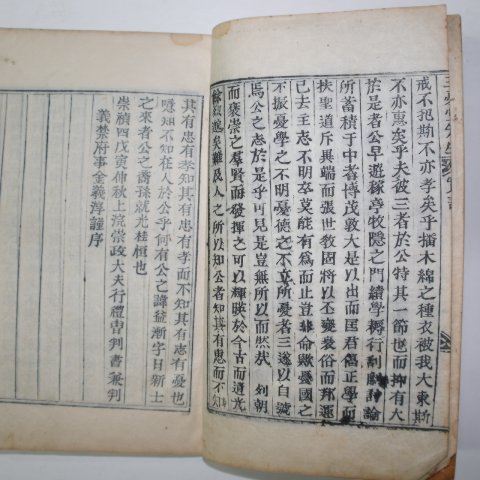 戒不把斯不亦孝矣乎播木綿之種衣被我大東斯
不亦惠矣乎夫被三者於公特其一節也而抑有大
於是者公早遊稼亭牧隱之門績學櫛行剖劇討論
所蓄積于中者博茂敦大是以出而匡君傷正學而
扶聖道斥異端而張世敎固將以丕變衰俗而邦運
已去王志不明卒莫能有爲而止豈非命歟憂國之
不振憂學之不明憂德之不立所憂者三遂以自號
焉公之志於是乎可見是豈無所以而然哉 列朝
而褒崇之羣賢而發揮之可以輝暎於今古而遺光
餘烈邈矣難及人之所以知公者知其有惠而不知
其有忠有孝知其有忠有孝而不知其有忠有憂也
噫知不知在人於公乎何有公之諱益漸字日新士
之來者公之裔孫就光桂恒也
崇禎四戊寅仲秋上浣崇政大夫行禮曺判書兼判
義禁府事金義淳謹序